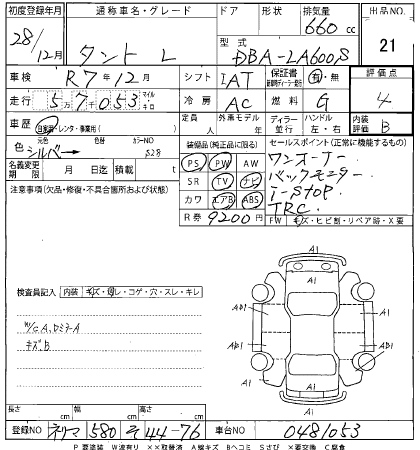 初度登録年月 通称車名・グレード ドア 形状 排気量 出品NO.
28/12月 タント L 660 cc 21
型式 DBA-LA600S
車検 R7年12月 シフト IAT 保証書 有・無 評価点
走行 57053 マイル キロ 冷房 AC 燃料 G 4
車歴 自家用・レンタ・事業用( ) 定員 人 外車モデル 年 ディーラー 並行 ハンドル 左・右 内装評価 B
色 元色 シルバー 色替 カラーNO S28
装備品(純正品に限る) セールスポイント(正常に機能するもの)
名義変更期限 月 日迄 積載 t
PS PW AW ワンオーナー
SR TV ナビ バックモニター
カワ エアB ABS i-STOP
R券 9200円 TRC.
注意事項(欠品・修復・不具合箇所および状態)
FW キズ・ヒビ割・リペア跡・X要
検査員記入 内装 キズ・汚レ・コゲ・穴・スレ・キレ
W/CA、ロミラーA
キズB
A1
A1
A1
AD1
A1
AD1
AD1
A1
A1
長さ cm 幅 cm 高さ cm
登録NO ネリマ 580 そ 44-76 車台NO 0481053
P要塗装 W波有り XX取替済 A線キズ Bヘコミ Sさび X要交換 C腐食